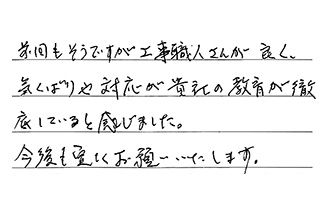 前回もそうですが工事職人さんが良く、
気くばりや対応が貴社の教育が徹
底していると感じました。
今後も宜しくお願いいたします。